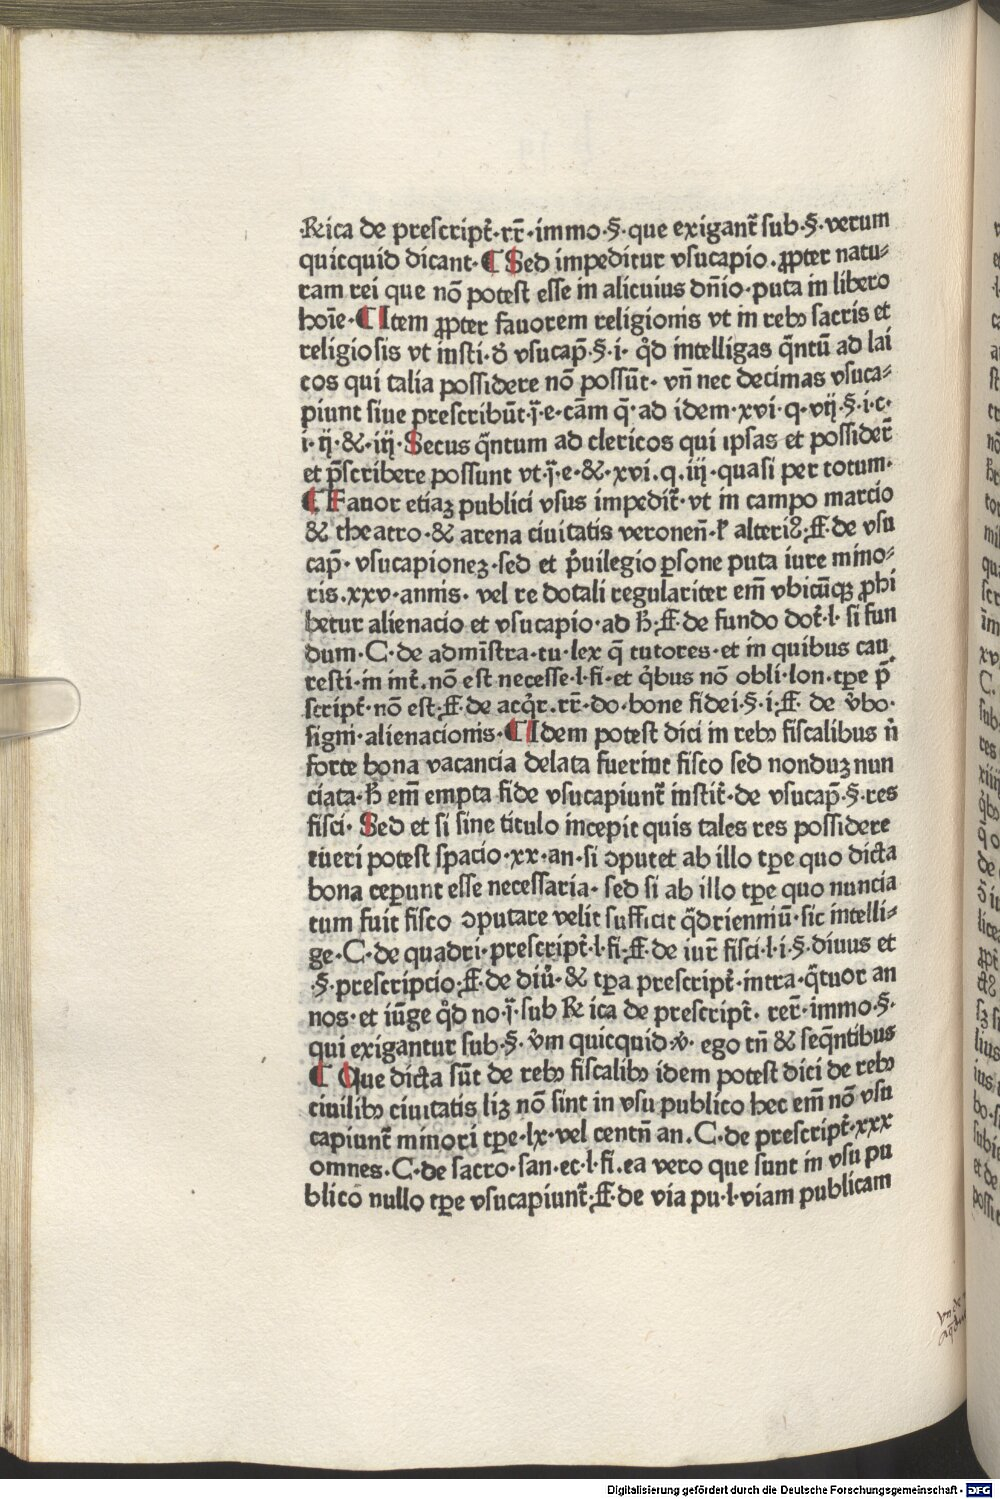 ·Rica de prescript̉·rr̄·immo·§·que exigant̃ sub·§·verum
quicquid dicant·¶ Sed impeditur vsucapio·ꝓpter natu⸗
ram rei que nō potest esse in alicuius dñio·puta in libero
hoīe·¶ Item ꝓpter fauorem religionis vt in rebꝰ sacris et
religiosis vt insti·đ vsucap̄·§·i· qd̉ intelligas q̄ntū ad lai
cos qui talia possidere nō possūt· vñ nec decimas vsuca⸗
piunt siue prescribūt·j̄·e·cām q̄·ad idem·xvi·q·vij·§·i·c·
i·ij·&·iij·Secus q̄ntum ad clericos qui ipsas et possider̄
et p̄scribere possunt vt·j̄·e·&·xvi·q·iij·quasi per totum·
¶ Fauor etiaꝫ publici vsus impedit̃·vt in campo marcio
& theatro·& arena ciuitatis veronen̄·ł alteriꝰ·ff·de vsu
cap̄·vsucapioneꝫ·sed et p̉uilegio ꝑsone puta iure mino⸗
ris·xxv·annis· vel re dotali regulariter em̄ vbicūqꝫ ꝓhi
betur alienacio et vsucapio·ad h̄·ff·de fundo dot̉·l·si fun
dum·C·de admīstra·tu·lex q̄ tutores·et in quibus cau
resti·in int̉·nō est necesse·l·fi·et q̉bus nō obli·lon·tꝑe p̄
script̉·nō est·ff·de acq̉r·rr̄·do·bone fidei·§·i·ff· de v̉bo·
signi·alienacionis·¶ Idem potest dici in rebꝰ fiscalibus n̉
forte bona vacancia delata fuerint fisco sed nonduꝫ nun
ciata·h̄ em̄ empta fide vsucapiunt̃ instit̉·de vsucap̄·§·res
fisci· Sed et si sine titulo incepit quis tales res possidere
tueri potest spacio·xx·an·si ꝯputet ab illo tꝑe quo dicta
bona ceꝑunt esse necessaria· sed si ab illo tꝑe quo nuncia
tum fuit fisco ꝯputare velit sufficit q̄driennіū·sic intelli⸗
ge·C·de quadri·prescript̉·l·fi·ff·de iur̄ fisci·l·i·§·diuus et
·§·prescripcio·ff·de diủ·& tꝑa prescript̉·intra·q̄tuor an
nos·et iūge qd̉ no·j̄·sub Rica de prescript̉· rer̄·immo·§·
qui exigantur sub·§· v̉m quicquid·v̉· ego tñ & seq̄ntibus
¶ Que dicta sūt de rebꝰ fiscalibꝰ idem potest dici de rebꝰ
ciuilibꝰ ciuitatis liꝫ nō sint in vsu publico hec em̄ nō vsu
capiunt̃ minori tꝑe·lx·vel centn̄ an·C·de prescript̉·xxx
omnes·C·de sacro·san·ec·l·fi·ea vero que sunt in vsu pu
blico nullo tꝑe vsucapiunt̃·ff·de via pu·l·viam publicam
Digitalisierung gefördert durch die Deutsche Forschungsgemeinschaft - DFG